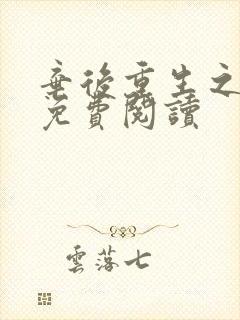 棄後重生之
免費閱讀
雲落七